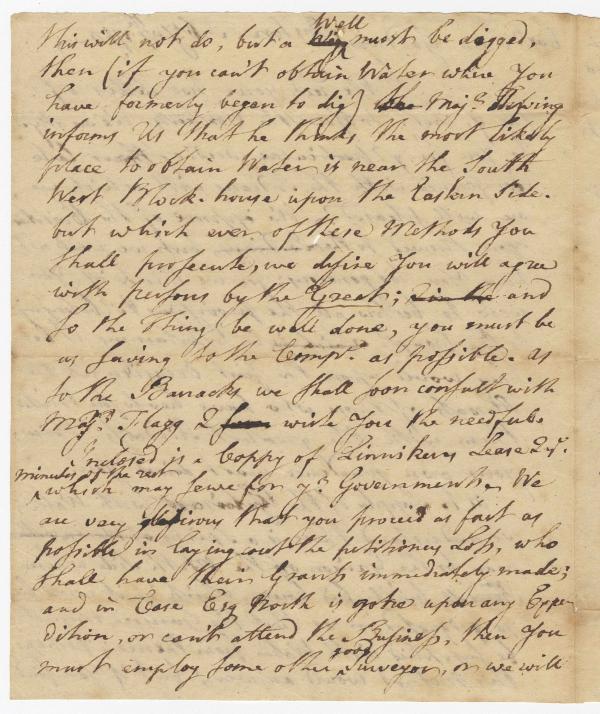 this will not do, but a Well must be digged,
then (if you can't obtain Water where You
have formerly began to dig) Majr.
informs Us that he thinks the most likely
place to obtain Water is near the South
West Block-house upon the Eastern Side.
but which ever of these Methods You
Shall prosecute, we desire You will agree
with persons by the Great; and
So the Thing be well done, you must be
as saving to the Compy. as possible. as
to the Barracks we Shall soon consult with
Majr. Flagg & write You the needful.
Inclosed is a Coppy of Linnikers Lease & ye.
minutes of the rest
which may serve for yr. Government. We
are very desirous that you proceed as fast as
possible in laying out the petitioners Lots, who
Shall have their Grants immediately made;
and in Case Esq North is gone upon any Expe
dition, or can't attend the Business, then You
must employ some other good Surveyor, or we will